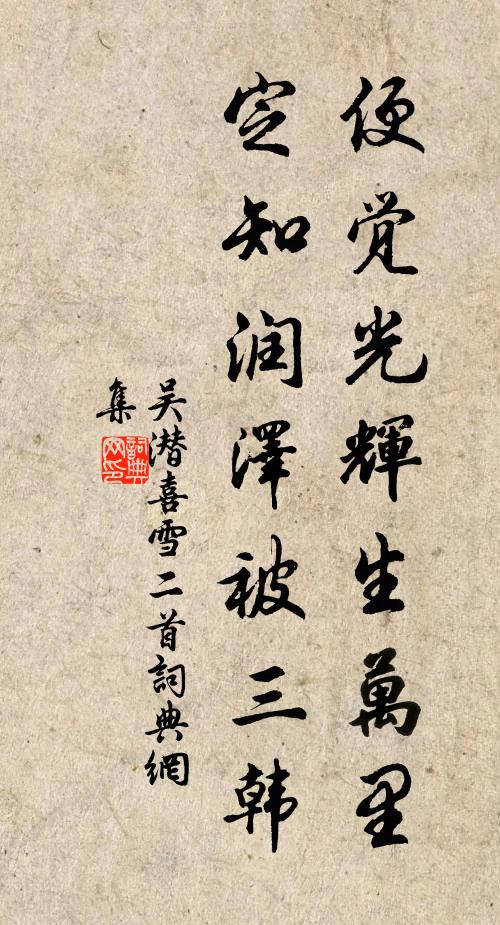 便觉光輝生萬里
定知润澤被三韩
吴潜喜雪二首詞典網
集
詞典网印